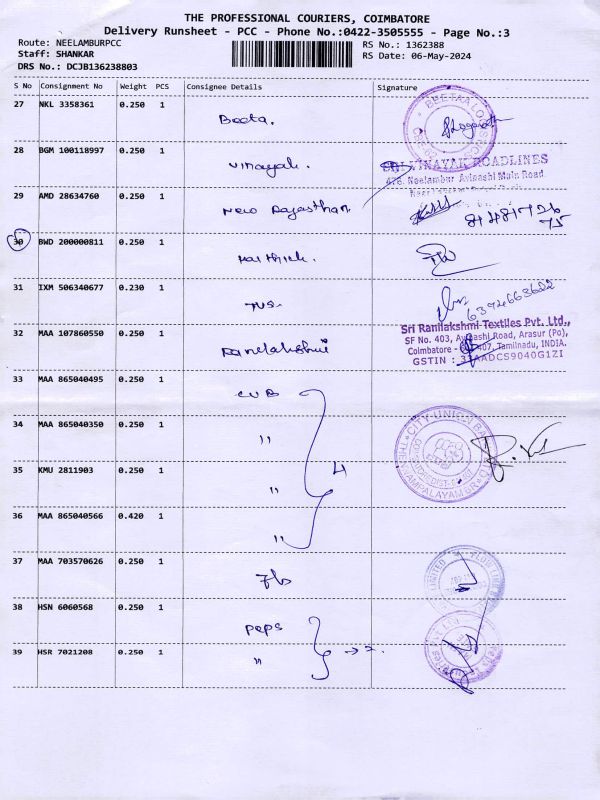 THE PROFESSIONAL COURIERS, COIMBATORE
Delivery Runsheet - PCC - Phone No.:0422-3505555 - Page No.:3
Route: NEELAMBURPCC
RS No.: 1362388
Staff: SHANKAR
RS Date: 06-May-2024
DRS No.: DCJB136238803
S No Consignment No Weight PCS Consignee Details Signature
27 NKL 3358361 0.250 1 Beeta.
28 BGM 100118997 0.250 1 Vinayak.
SRI VINAYAK ROADLINES
Neelambur Avinashi Main Road
29 AMD 28634760 0.250 1 New Rajasthan
30 BWD 200000811 0.250 1 Karthick.
31 IXM 506340677 0.230 1
32 MAA 107860550 0.250 1 Ranelakshmi
Sri Ranilakshmi Textiles Pvt. Ltd.,
SF No. 403, Avinashi Road, Arasur (Po),
Coimbatore - 407, Tamilnadu, INDIA.
GSTIN : 33AADCS9040G1ZI
33 MAA 865040495 0.250 1 CUB
34 MAA 865040350 0.250 1 "
35 KMU 2811903 0.250 1 " 4
36 MAA 865040566 0.420 1 "
CITY UNION BANK
37 MAA 703570626 0.250 1
38 HSN 6060568 0.250 1 Peps
39 HSR 7021208 0.250 1 " → 2.